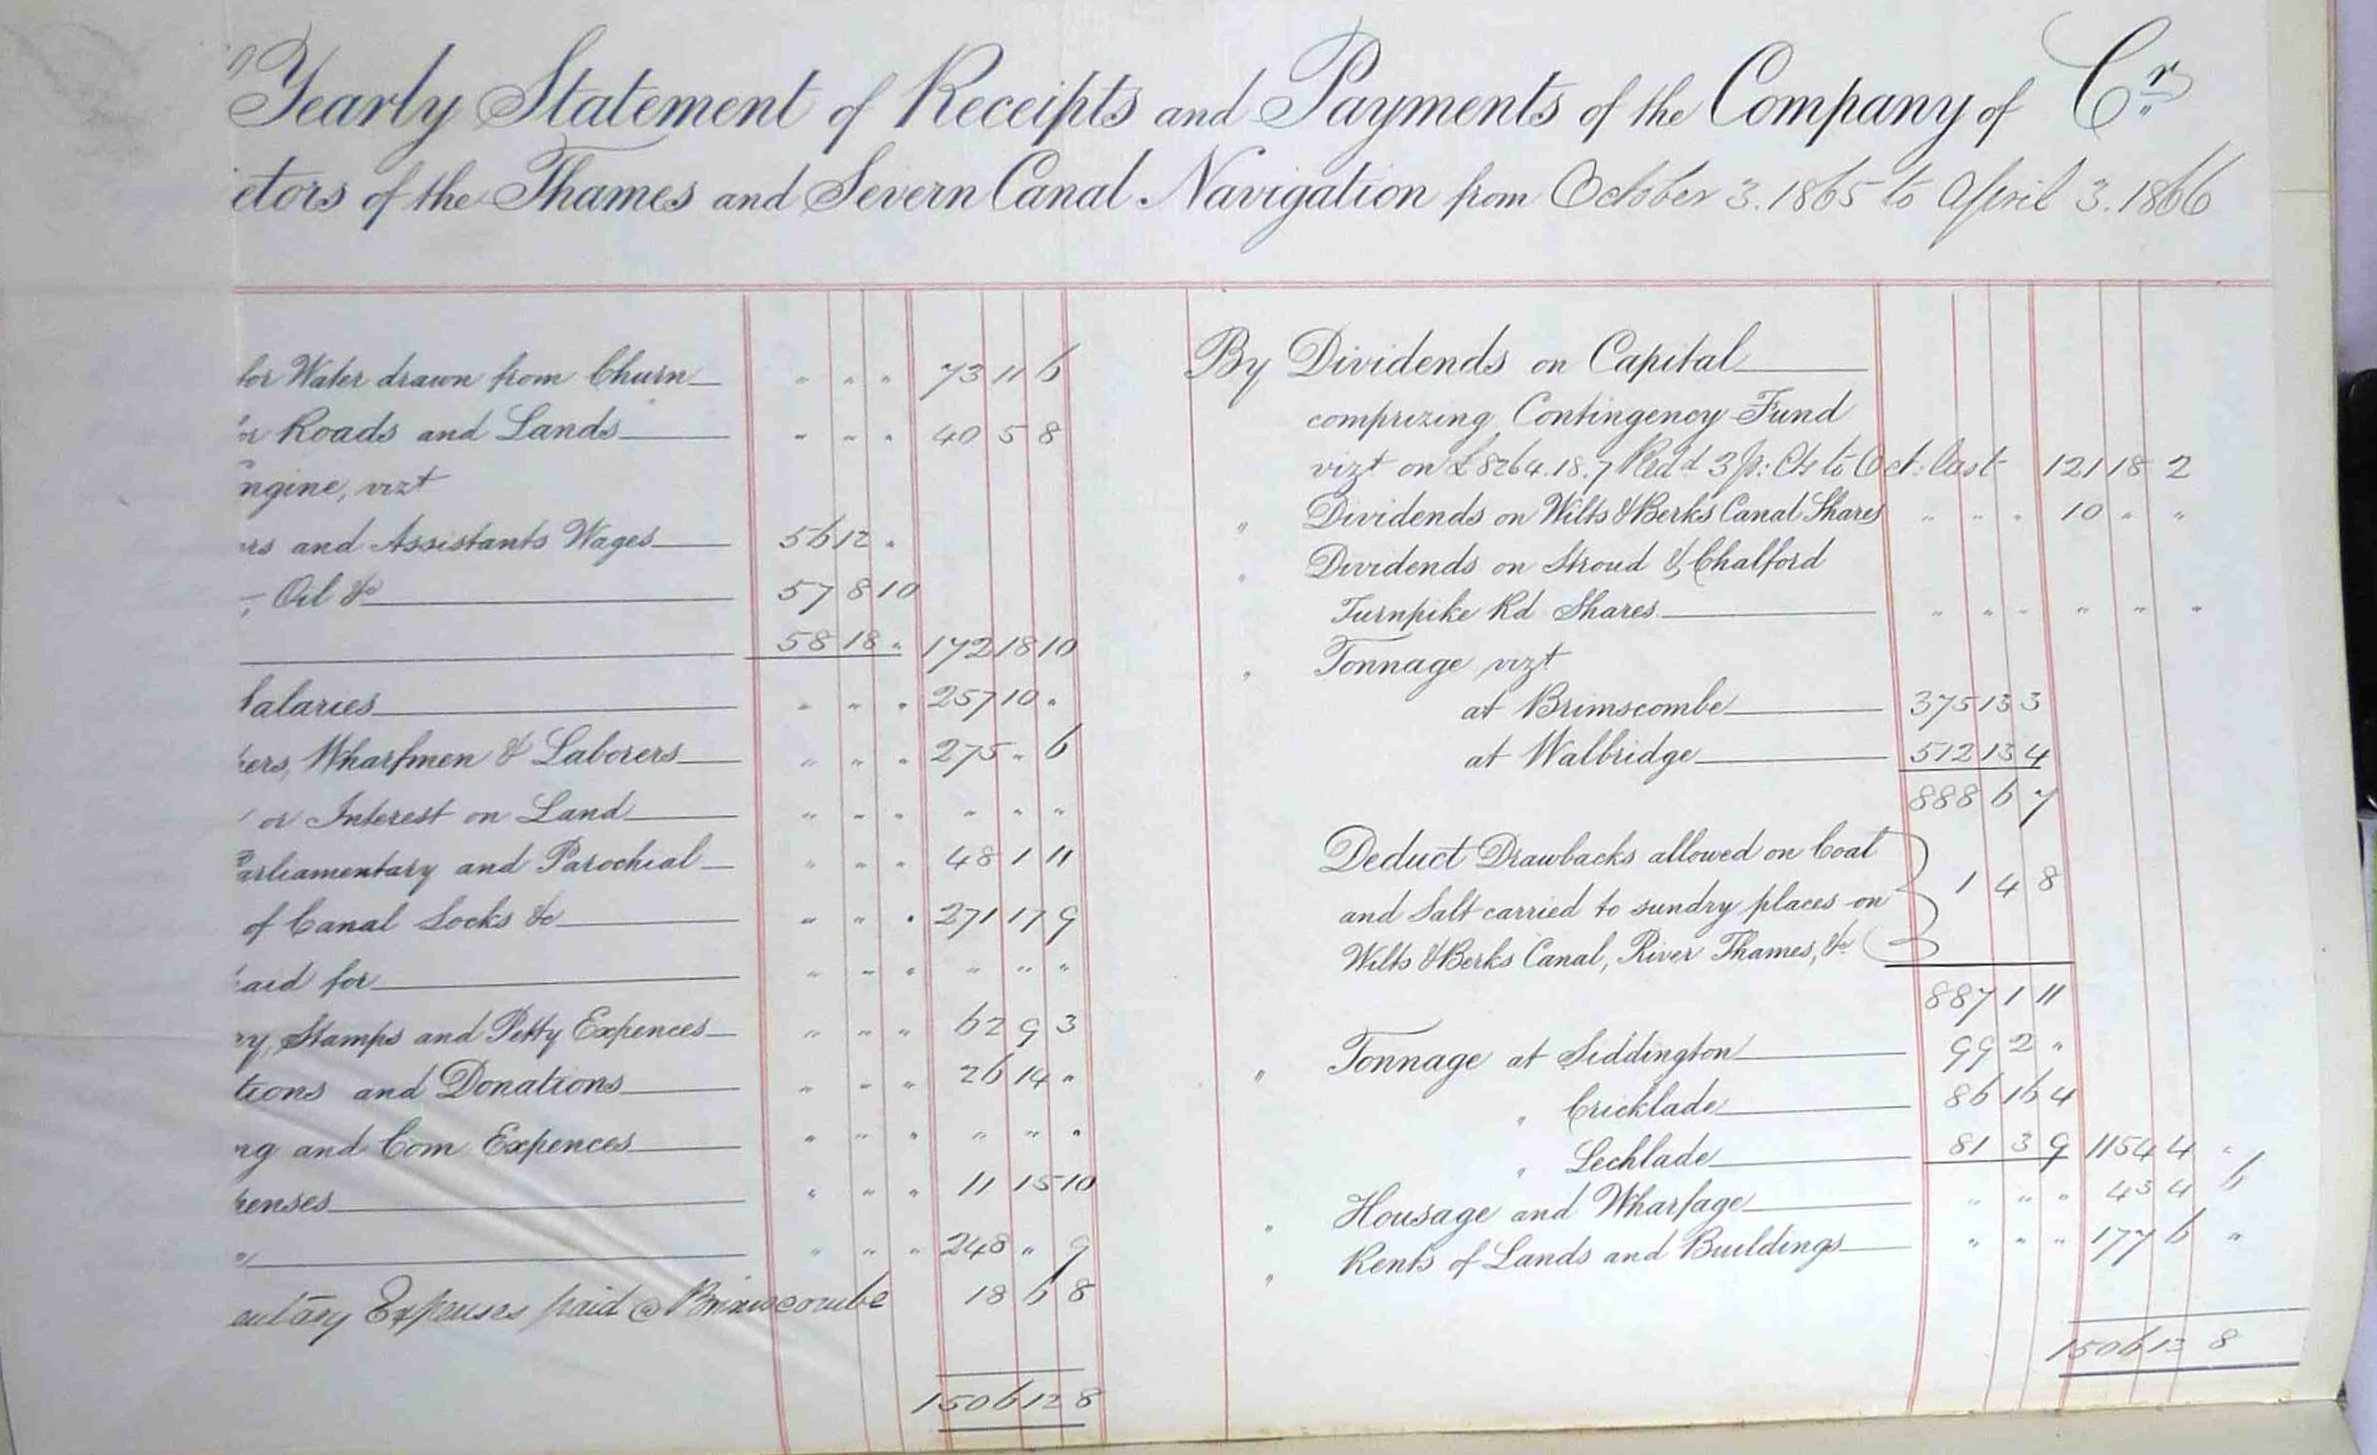 Yearly Statement of Receipts and Payments of the Company of Cr
etors of the Thames and Severn Canal Navigation from October 3. 1865 to April 3. 1866
for Water drawn from Churn " " " 73 11 6
or Roads and Lands " " " 40 5 8
ngine, vizt
rs and Assistants Wages 56 12 "
, Oil &c 57 8 10
58 18 " 172 18 10
Salaries " " " 257 10 "
ers, Wharfmen & Laborers " " " 275 " 6
or Interest on Land " " " " " "
arliamentary and Parochial " " " 48 1 11
of Canal Locks &c " " " 271 17 9
aid for " " " " " "
ry, Stamps and Petty Expences " " " 62 9 3
tions and Donations " " " 26 14 "
ng and Com Expences " " " " " "
penses " " " 11 15 10
" " " 248 " 9
entary Expenses paid @ Brimscombe 18 6 8
1506 12 8
By Dividends on Capital
comprizing Contingency Fund
vizt on £8264.18.7 Red d 3 p: Cts to Oct: last 121 18 2
" Dividends on Wilts & Berks Canal Shares " " " 10 " "
" Dividends on Stroud & Chalford
Turnpike Rd Shares " " " " " "
" Tonnage vizt
at Brimscombe 375 13 3
at Walbridge 512 13 4
888 6 7
Deduct Drawbacks allowed on Coal
and Salt carried to sundry places on 1 4 8
Wilts & Berks Canal, River Thames, &c
887 1 11
" Tonnage at Siddington 99 2 "
" Cricklade 86 16 4
" Lechlade 81 3 9 1154 4 "
" Housage and Wharfage " " " 43 4 6
" Rents of Lands and Buildings " " " 177 6 "
1506 12 8